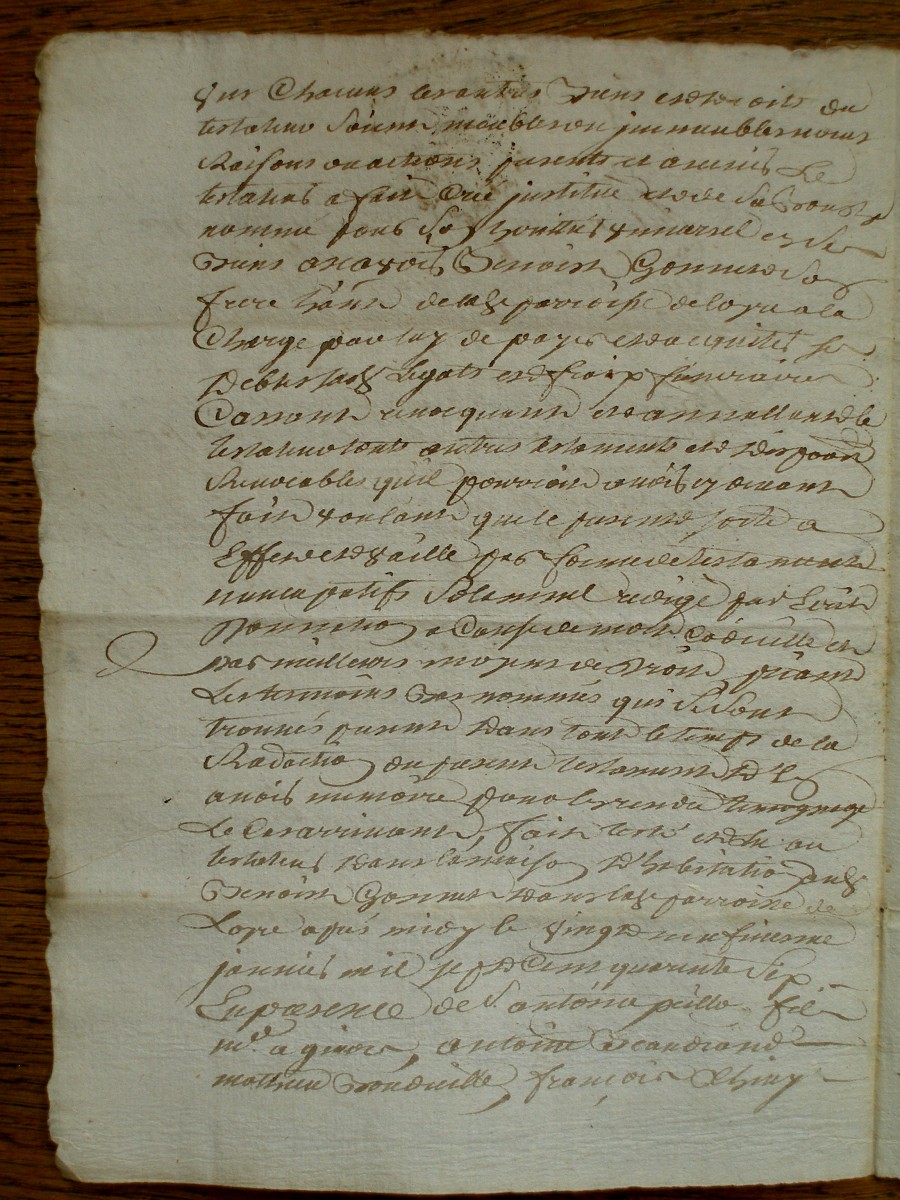 sur chacuns les autres biens et droits du
testateur soient meubles ou immeubles noms
Raisons ou actions presents et avenir Le
testateur a fait Crée institué et de sa bouche
nommé pour son heritier universel et de
biens avoir Benoist son
frere de lad parroisse de Loyre a la
Charge par luy de payer et acquiter ses
debtes sud Legats et fraix funeraires
Cassant revoquant et annullant le
testateur touts autres testaments et disposons
Revocables qu'il pourroit avoir cy devant
fait voulant que le present sorte a
Effet et vaille par forme de testament
nuncupatif solemnel redigé par Ecrit
donnation a Cause de mort Codicille et
par meilleurs moyens de droit, priant
Les termoins bas nommés qui se sont
trouvés presents dans tout le temps de la
Redaction du present testament d'en
avoir memoire pour en rendre temoignage
Le Cas arrivant, fait leu et relu au
testateur dans la maison d'habitation dud
Benoist dans lad parroisse de
Loyre aprés midy le vingt neufvieme
janvier mil sept Cent quarente sept
En presence de Sr antoine fils
md a givors, antoine
mathieu Bonduille, françois